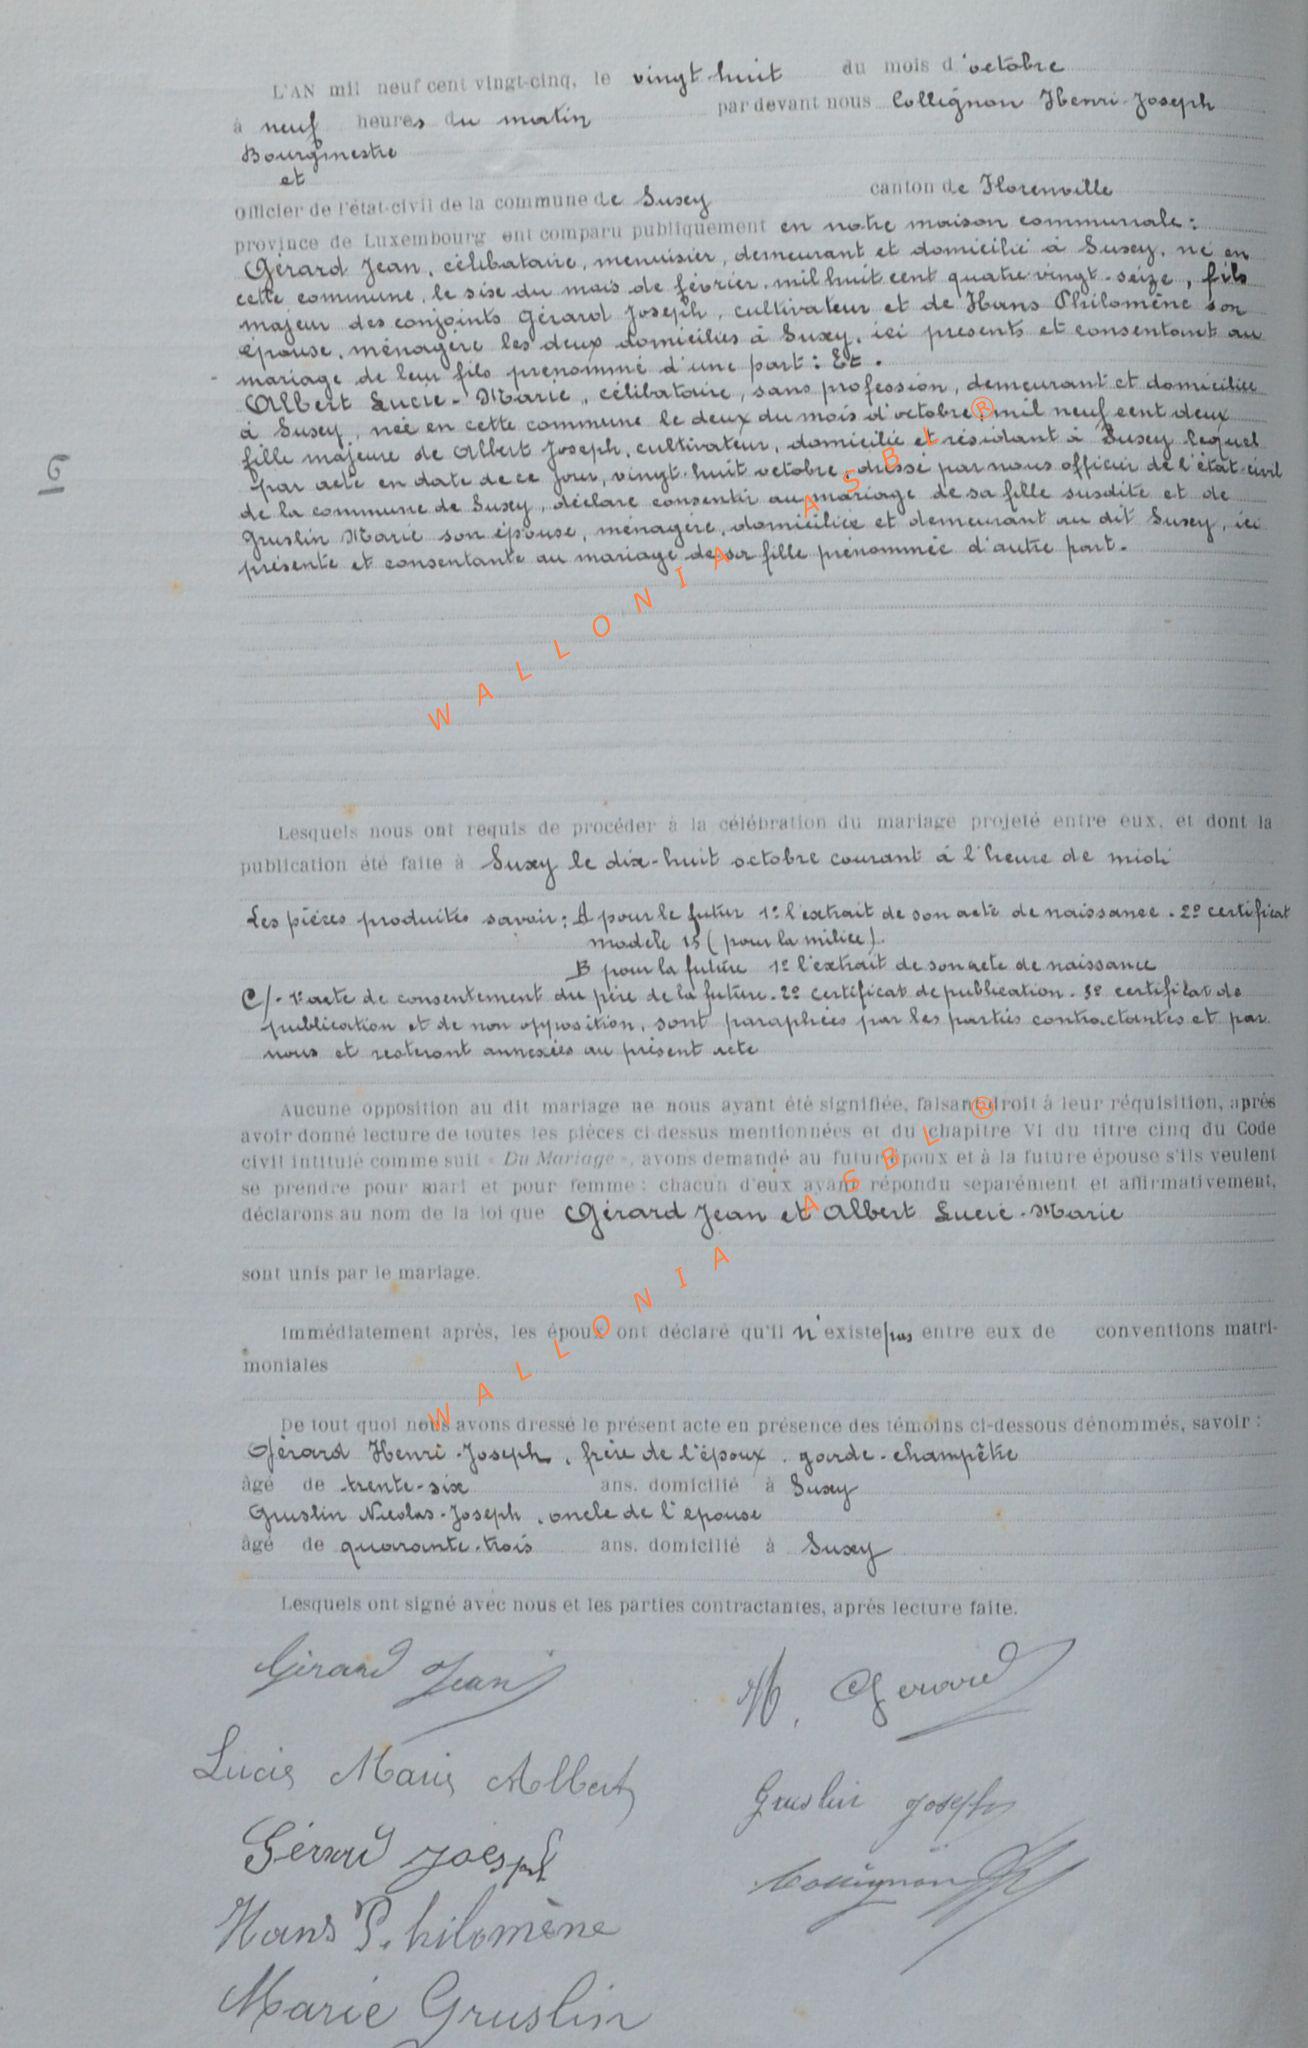 L'AN mil neuf cent vingt-cinq, le vingt-huit du mois d'octobre
à neuf heures du matin par devant nous Collignon Henri-Joseph
Bourgmestre
et
Officier de l'état-civil de la commune de Suxy canton de Florenville
province de Luxembourg ont comparu publiquement en notre maison communale :
Gérard Jean, célibataire, menuisier, demeurant et domicilié à Suxy, né en
cette commune, le six du mois de février, mil huit cent quatre-vingt-seize, fils
majeur des conjoints Gérard Joseph, cultivateur et de Hans Philomène son
épouse, ménagère les deux domiciliés à Suxy, ici présents et consentant au
mariage de leur fils prénommé d'une part : Et.
Albert Lucie-Marie, célibataire, sans profession, demeurant et domiciliée
à Suxy, née en cette commune le deux du mois d'octobre mil neuf cent deux
fille majeure de Albert Joseph, cultivateur, domicilié et résidant à Suxy lequel
par acte en date de ce jour, vingt-huit octobre, dressé par nous officier de l'état-civil
de la commune de Suxy, déclare consentir au mariage de sa fille susdite et de
Gruslin Marie son épouse, ménagère, domiciliée et demeurant au dit Suxy, ici
présente et consentante au mariage de sa fille prénommée d'autre part.
6
WALLONIA ASBL ®
Lesquels nous ont requis de procéder à la célébration du mariage projeté entre eux, et dont la
publication été faite à Suxy le dix-huit octobre courant à l'heure de midi
Les pièces produites savoir : A pour le futur 1° l'extrait de son acte de naissance. 2° certificat
modèle 15 (pour la milice).
B pour la future 1° l'extrait de son acte de naissance
C/. 1° acte de consentement du père de la future. 2° certificat de publication. 3° certificat de
publication et de non opposition, sont paraphées par les parties contractantes et par
nous et resteront annexées au présent acte
Aucune opposition au dit mariage ne nous ayant été signifiée, faisant droit à leur réquisition, après
avoir donné lecture de toutes les pièces ci-dessus mentionnées et du chapitre VI du titre cinq du Code
civil intitulé comme suit « Du Mariage », avons demandé au futur époux et à la future épouse s'ils veulent
se prendre pour mari et pour femme : chacun d'eux ayant répondu séparément et affirmativement,
déclarons au nom de la loi que Gérard Jean et Albert Lucie-Marie
sont unis par le mariage.
WALLONIA ASBL ®
Immédiatement après, les époux ont déclaré qu'il n'existe pas entre eux de conventions matri-
moniales
De tout quoi nous avons dressé le présent acte en présence des témoins ci-dessous dénommés, savoir :
Gérard Henri-Joseph, frère de l'époux, garde-champêtre
âgé de trente-six ans, domicilié à Suxy
Gruslin Nicolas-Joseph, oncle de l'épouse
âgé de quarante-trois ans, domicilié à Suxy
Lesquels ont signé avec nous et les parties contractantes, après lecture faite.
Gérard Jean
H. Gerard
Lucie Marie Albert
Gruslin Joseph
Gérard Joesph
Collignon H
Hans Philomène
Marie Gruslin